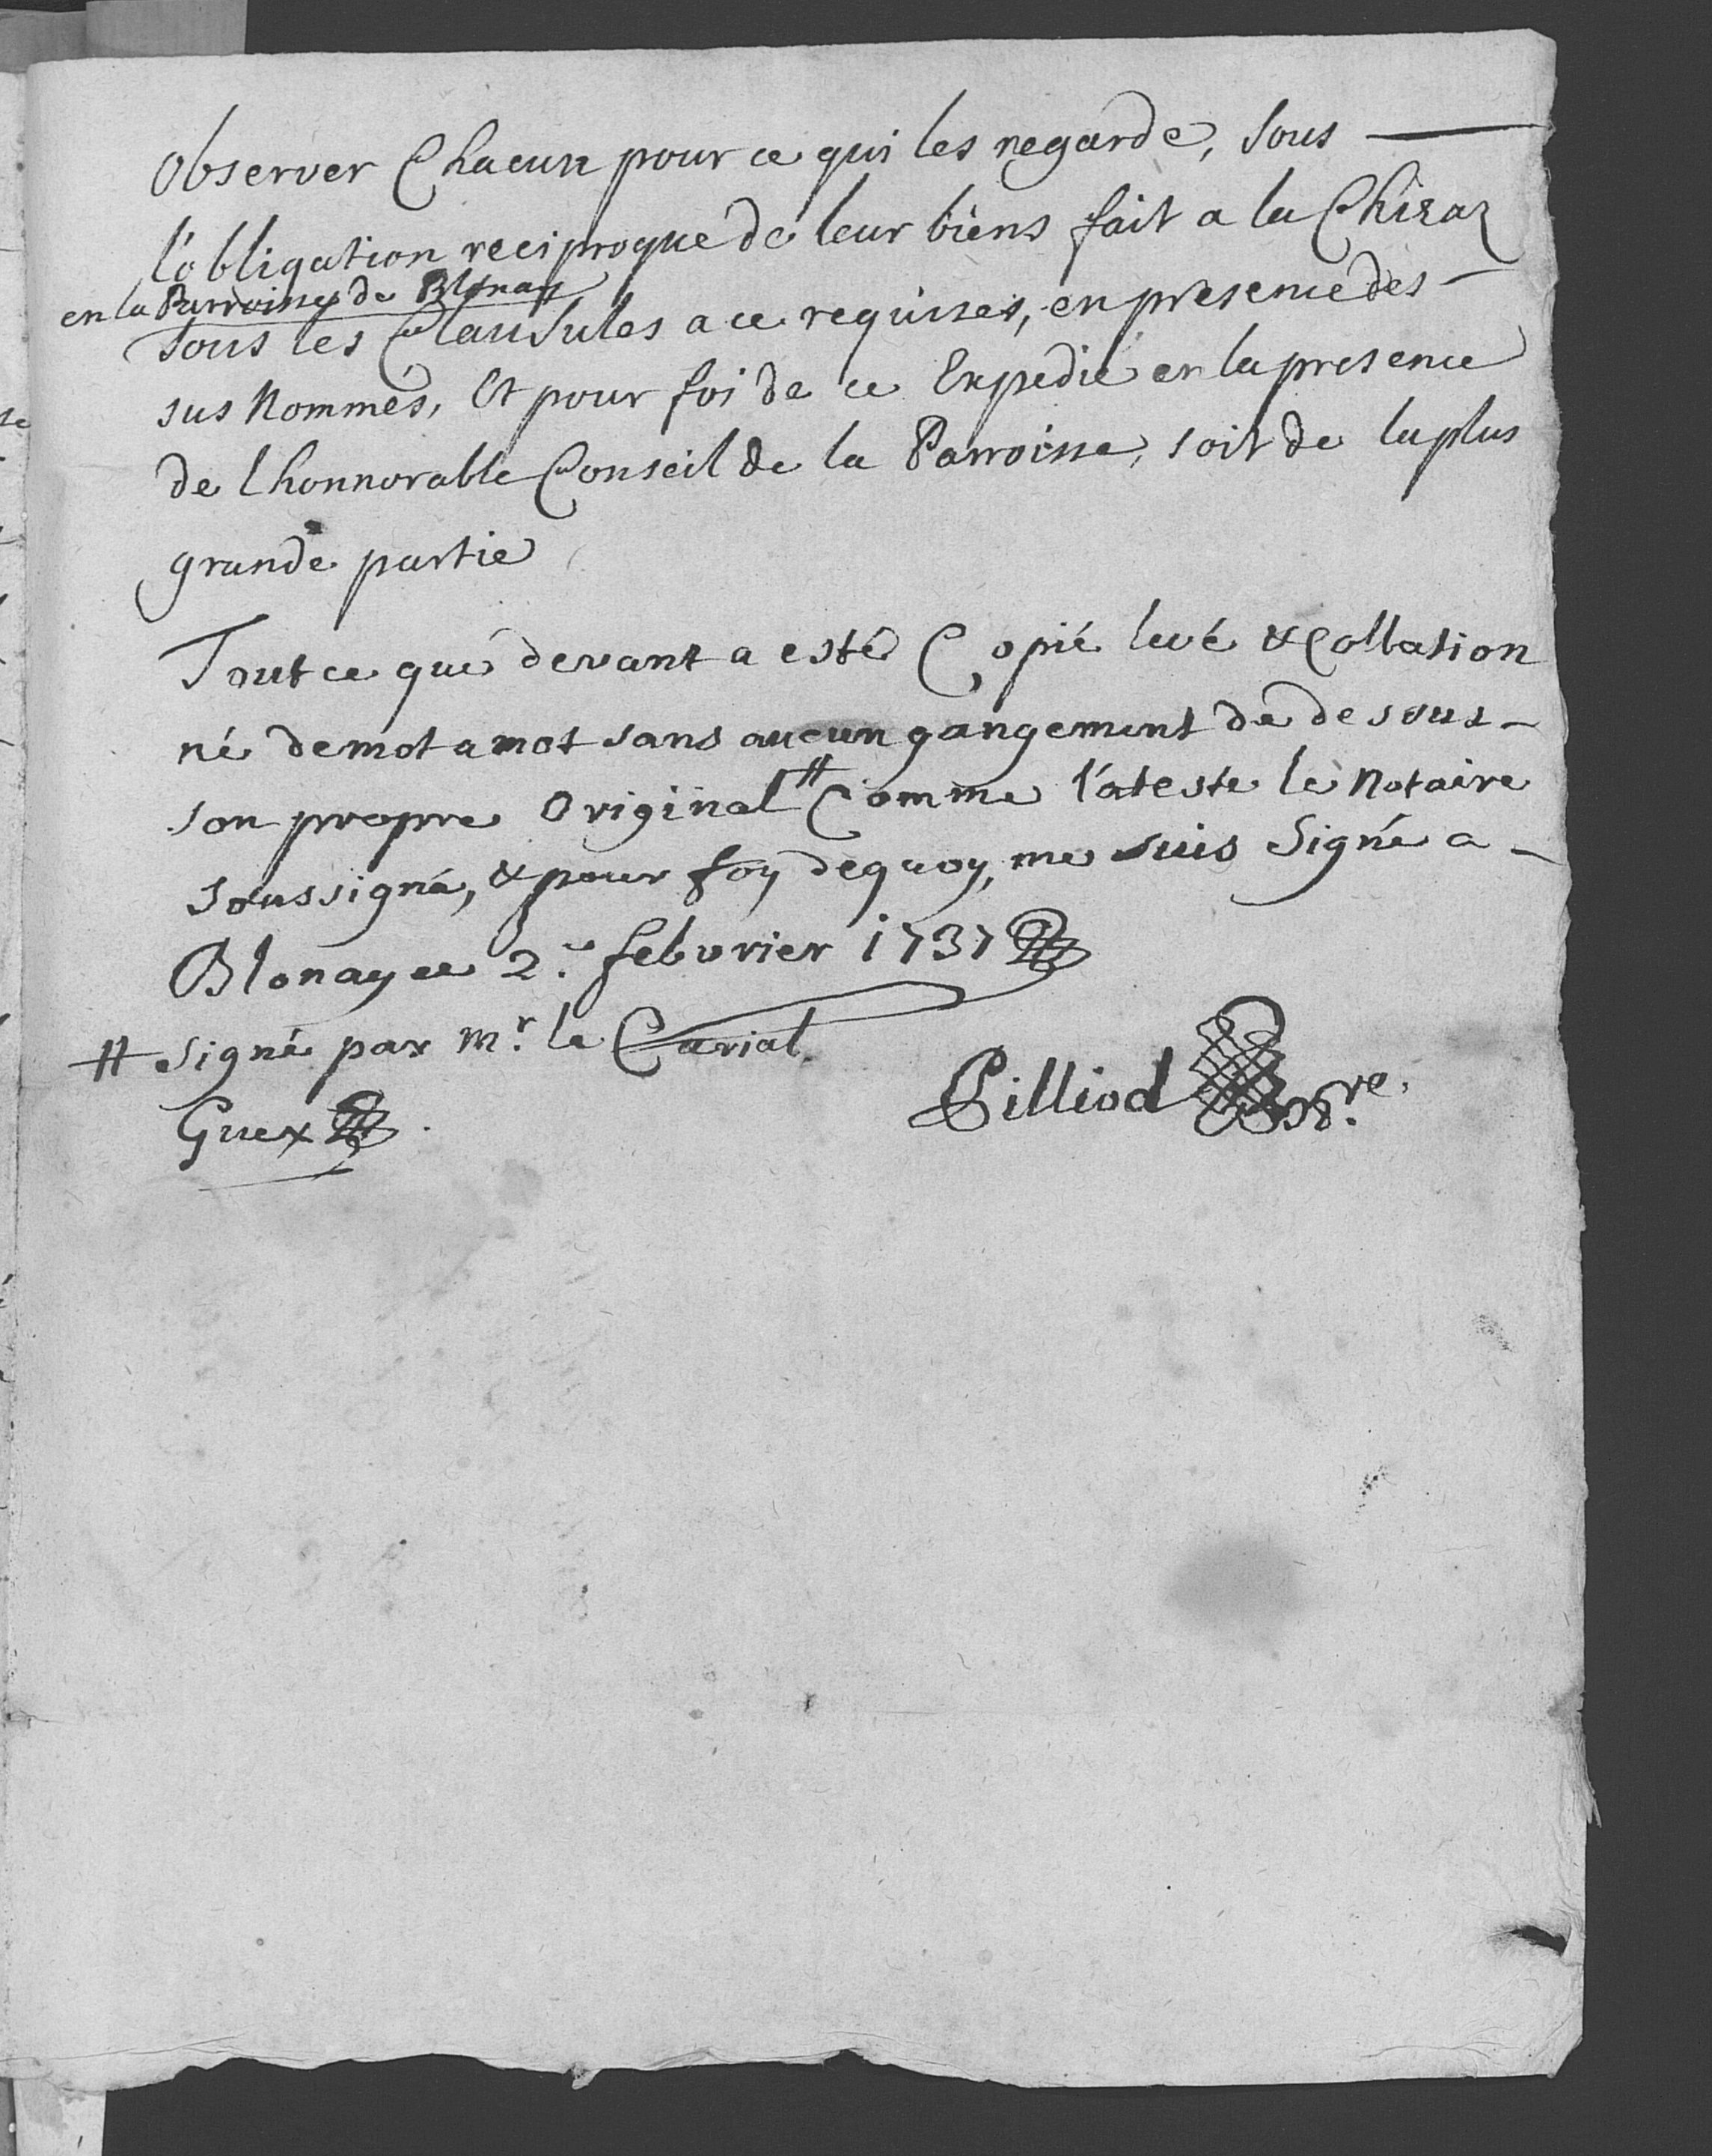 Observer Chacun pour ce qui les regarde, sous —
l'obligation reciproque de leur biens fait a la Chizaz
en la Parroisse de Blonay
sous les Clausules a ce requises, en presence des -
sus Nommés, Et pour foi de ce Expedié en la presence
de l honnorable Conseil de la Parroisse, soit de la plus
grande partie
Tout ce que devant a esté Copié levé & Collation
né de mot a mot sans aucun gangement de de sous -
son propre Original # Comme l'ateste le Notaire
soussigné, & pour foy dequoy, me suis Signé a -
Blonay ce 2.e febvrier 1737
# signé par Mr. le Curial
Guex
Pilliod Notre.